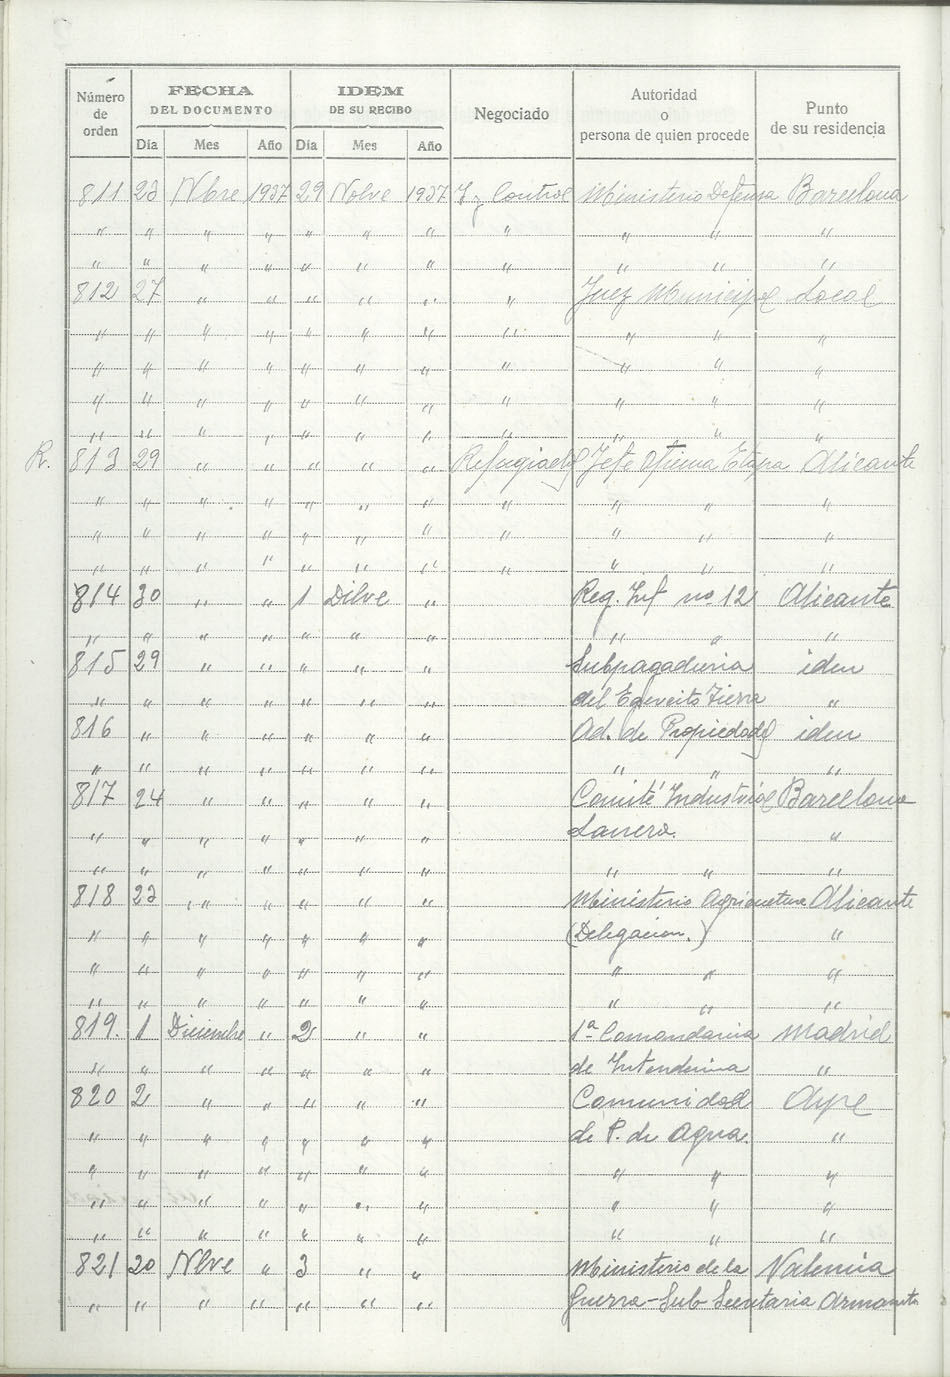 Número de orden | FECHA DEL DOCUMENTO | IDEM DE SU RECIBO | Negociado | Autoridad o persona de quien procede | Punto de su residencia
Día | Mes | Año | Día | Mes | Año
811 23 Nbre 1937 29 Nobre 1937 Control Ministerio Defensa Barcelona
" " " " " " " " " " "
" " " " " " " " " " "
812 27 " " " " " " Juez Municipal Local
" " " " " " " " " " "
" " " " " " " " " " "
" " " " " " " " " " "
" " " " " " " " " " "
R. 813 29 " " " " " Refugiados Jefe Oficina Etapa Alicante
" " " " " " " " " " "
" " " " " " " " " " "
" " " " " " " " " " "
814 30 " " 1 Dibre " Reg. Inf no. 12 Alicante
" " " " " " " " " "
815 29 " " " " " Subpagaduria iden
" " " " " " " del Egercito Tierra "
816 " " " " " " Ad. de Propiedads iden
" " " " " " " " " "
817 24 " " " " " Comité Industrial Barcelona
" " " " " " " Lanero. "
" " " " " " " " " "
818 23 " " " " " Ministerio Agricultura Alicante
" " " " " " " (Delegacion.) "
" " " " " " " " " "
" " " " " " " " " "
819. 1 Diciembre " 2 " " 1ª Comandancia Madrid
" " " " " " " de Intendencia "
820 2 " " " " " Comunidad Aspe
" " " " " " " de P. de Agua. "
" " " " " " " " " "
" " " " " " " " " "
" " " " " " " " " "
821 20 Nbre " 3 " " Ministerio de la Valencia
" " " " " " " Guerra-Sub Secretaria Armamto